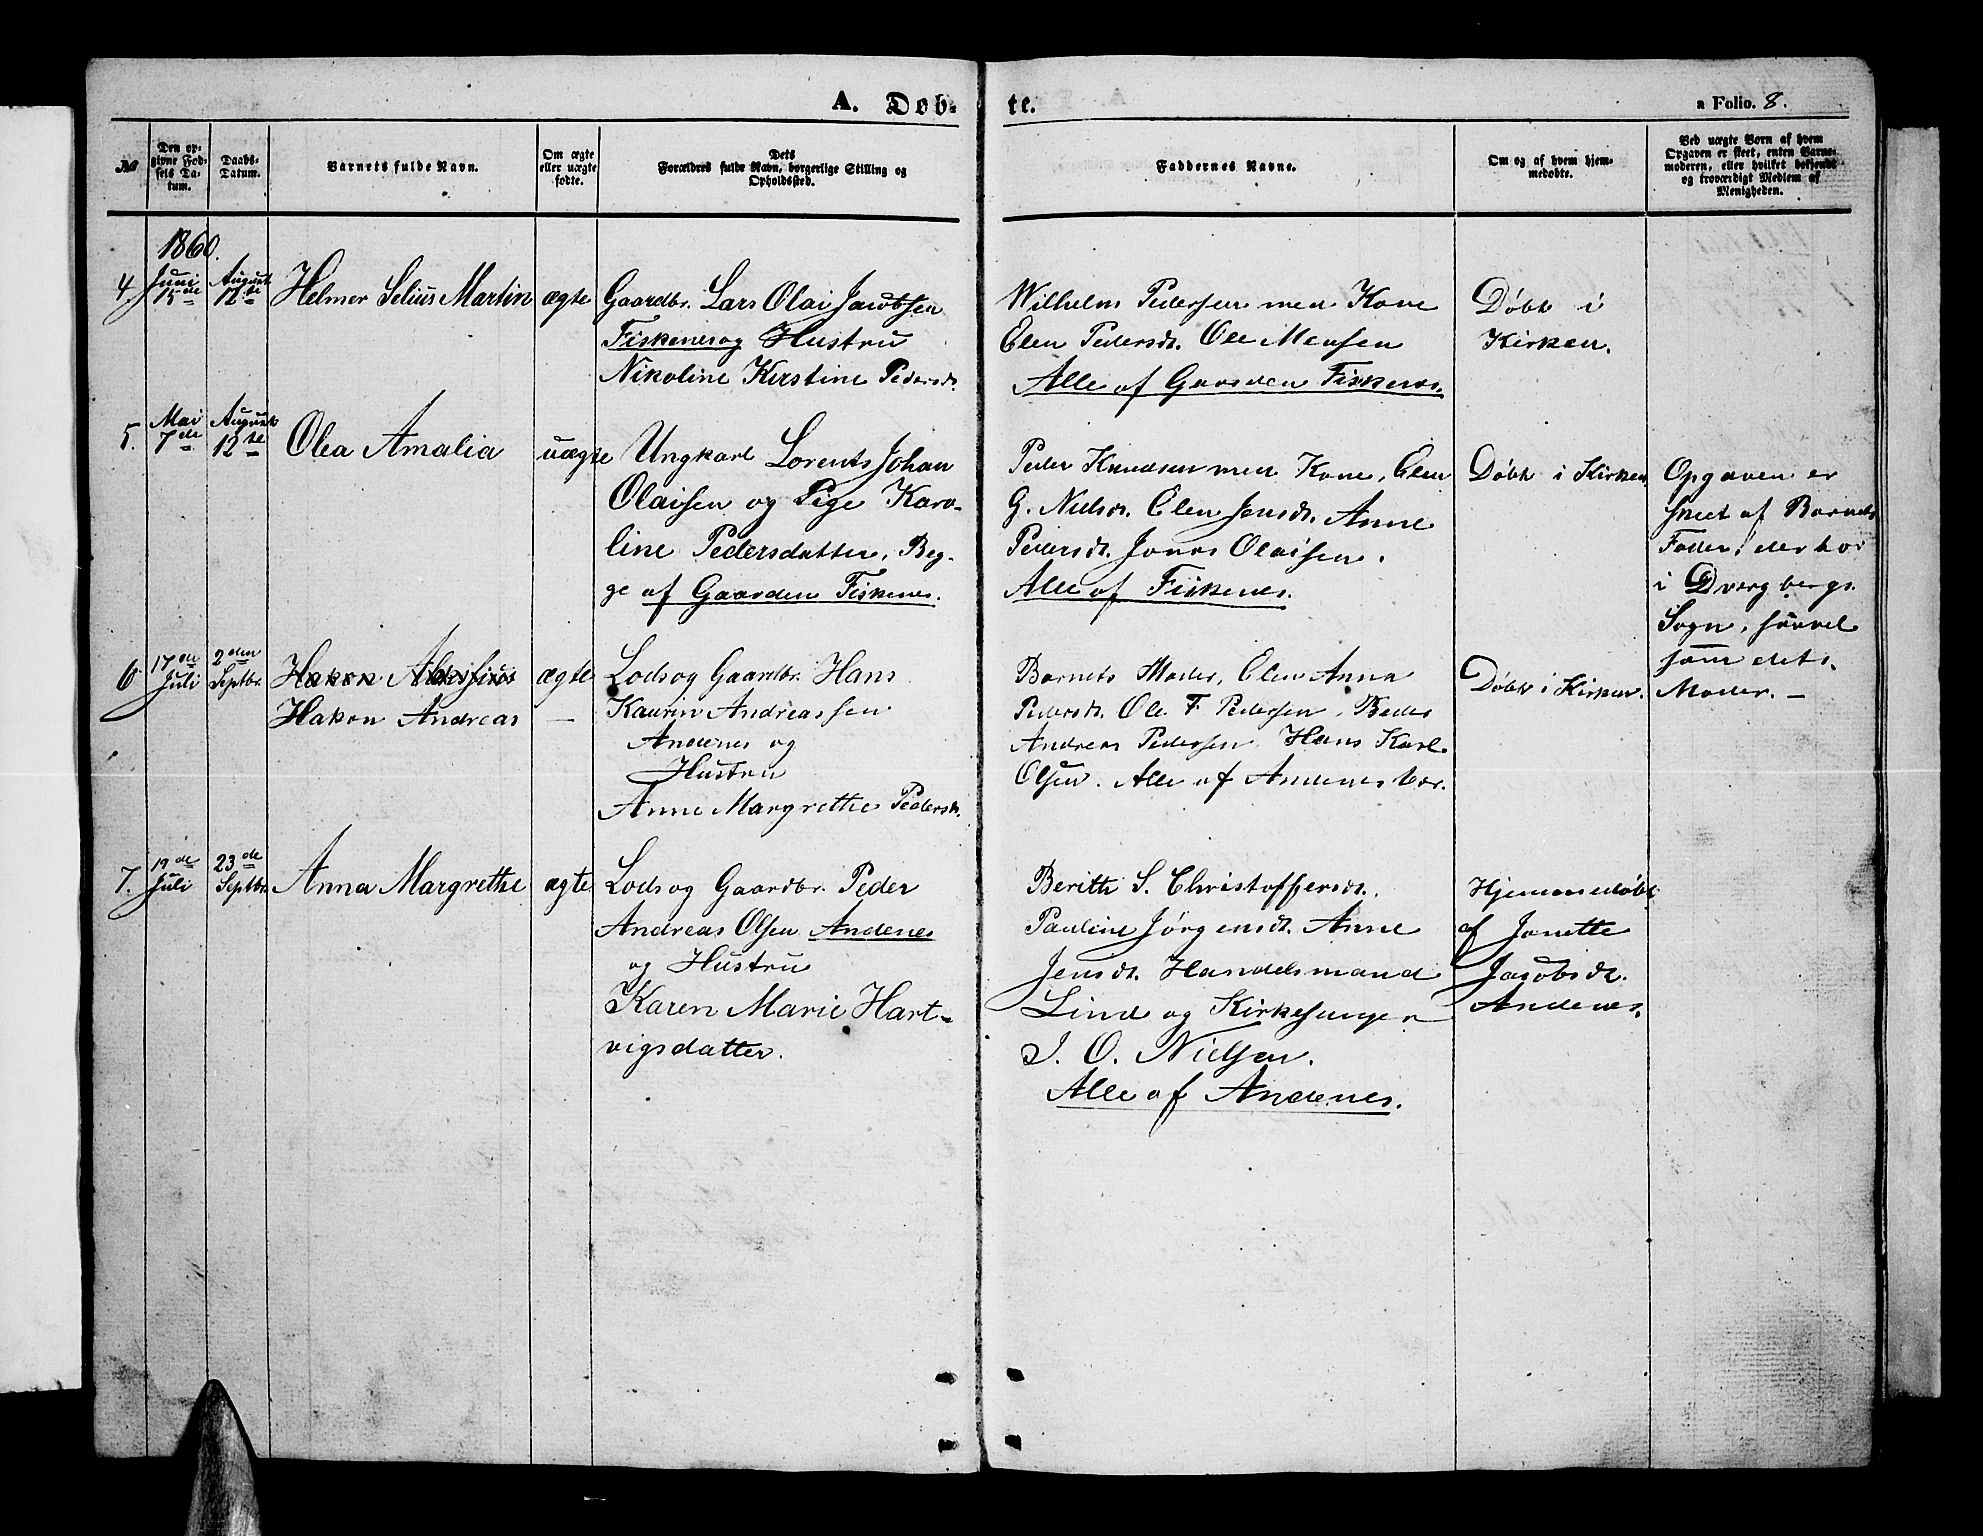 A. Døb-
te.
a Folio. 8.
№
Den op-
givne Fød-
sels Da-
tum.
Daabs-
Datum.
Barnets fulde Navn.
Om ægte
eller uægte
fødte.
Dets
Forældres fulde Navn, borgerlige Stilling og
Opholdssted.
Faddernes Navne.
Om og af hvem hjem-
medøbte.
Ved uægte Børn af hvem
Opgaven er skeet, enten Barne-
moderen, eller hvilket bekjendt
og troværdigt Medlem af
Menigheden.
1860.
4.
Juni
15de
August
12te
Helmer Selius Martin
ægte
Gaardbr. Lars Olai Jacobsen
Fiskenes og Hustru
Nikoline Kirstine Pedersdt.
Wilhelm Pedersen med Kone
Elen Pedersdt. Ole
Alle af Gaarden Fiskenes.
Døbt i
Kirken.
5.
Mai
7de
August
12te
Olea Amalia
uægte
Ungkarl Lorents Johan
Olaisen og Pige Karo-
line Pedersdatter, Beg-
ge af Gaarden Fiskenes.
Peder Knudsen med Kone, Elen
G. Nielsdt. Elen Jensdt. Anne
Pedersdt. Jonas Olaisen.
Alle af Fiskenes.
Døbt i Kirken
Opgaven er
skeet af Barnets
Fader, der bor
i Dvergbergs
Sogn, saavel
som dets
Moder. —
6
17de
Juli
2den
Septbr.
Hakon
Hakon Andreas
ægte
—
Lods og Gaardbr. Hans
Kaurin Andreassen
Andenes og
Hustru
Anne Margrethe Pedersdt.
Barnets Moder, Elen Anna
Pedersdt. Ole F. Pedersen, Peder
Andreas Pedersen, Hans Karl
Olsen. Alle af Andenesvær.
Døbt i Kirken.
7.
19de
Juli
23de
Septbr.
Anna Margrethe
ægte
Lods og Gaardbr. Peder
Andreas Olsen Andenes
og Hustru
Karen Marie Hart-
vigsdatter.
Berith S. Christoffersdt.
Pauline Jørgensdt. Anne
Jensdt. Handelsmand
Lind og Kirkesanger
J. O. Nielsen.
Alle af Andenes.
Hjemmedøbt
af Janette
Jacobsdt.
Andenes.